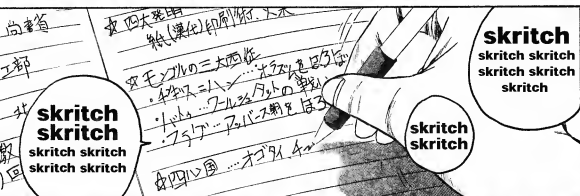 尚書省
工部
☆四大発明
紙(漢代)印刷術、火
☆モンゴルの三大西征
・チンギス=ハン…ホラズムをほろぼ
・バトゥ…ワールシュタットの戦い
・フラグ…アッバース朝をほろ
☆四ハン国…オゴタイ、チャ
skritch
skritch
skritch skritch
skritch skritch
skritch
skritch
skritch
skritch skritch
skritch skritch
skritch